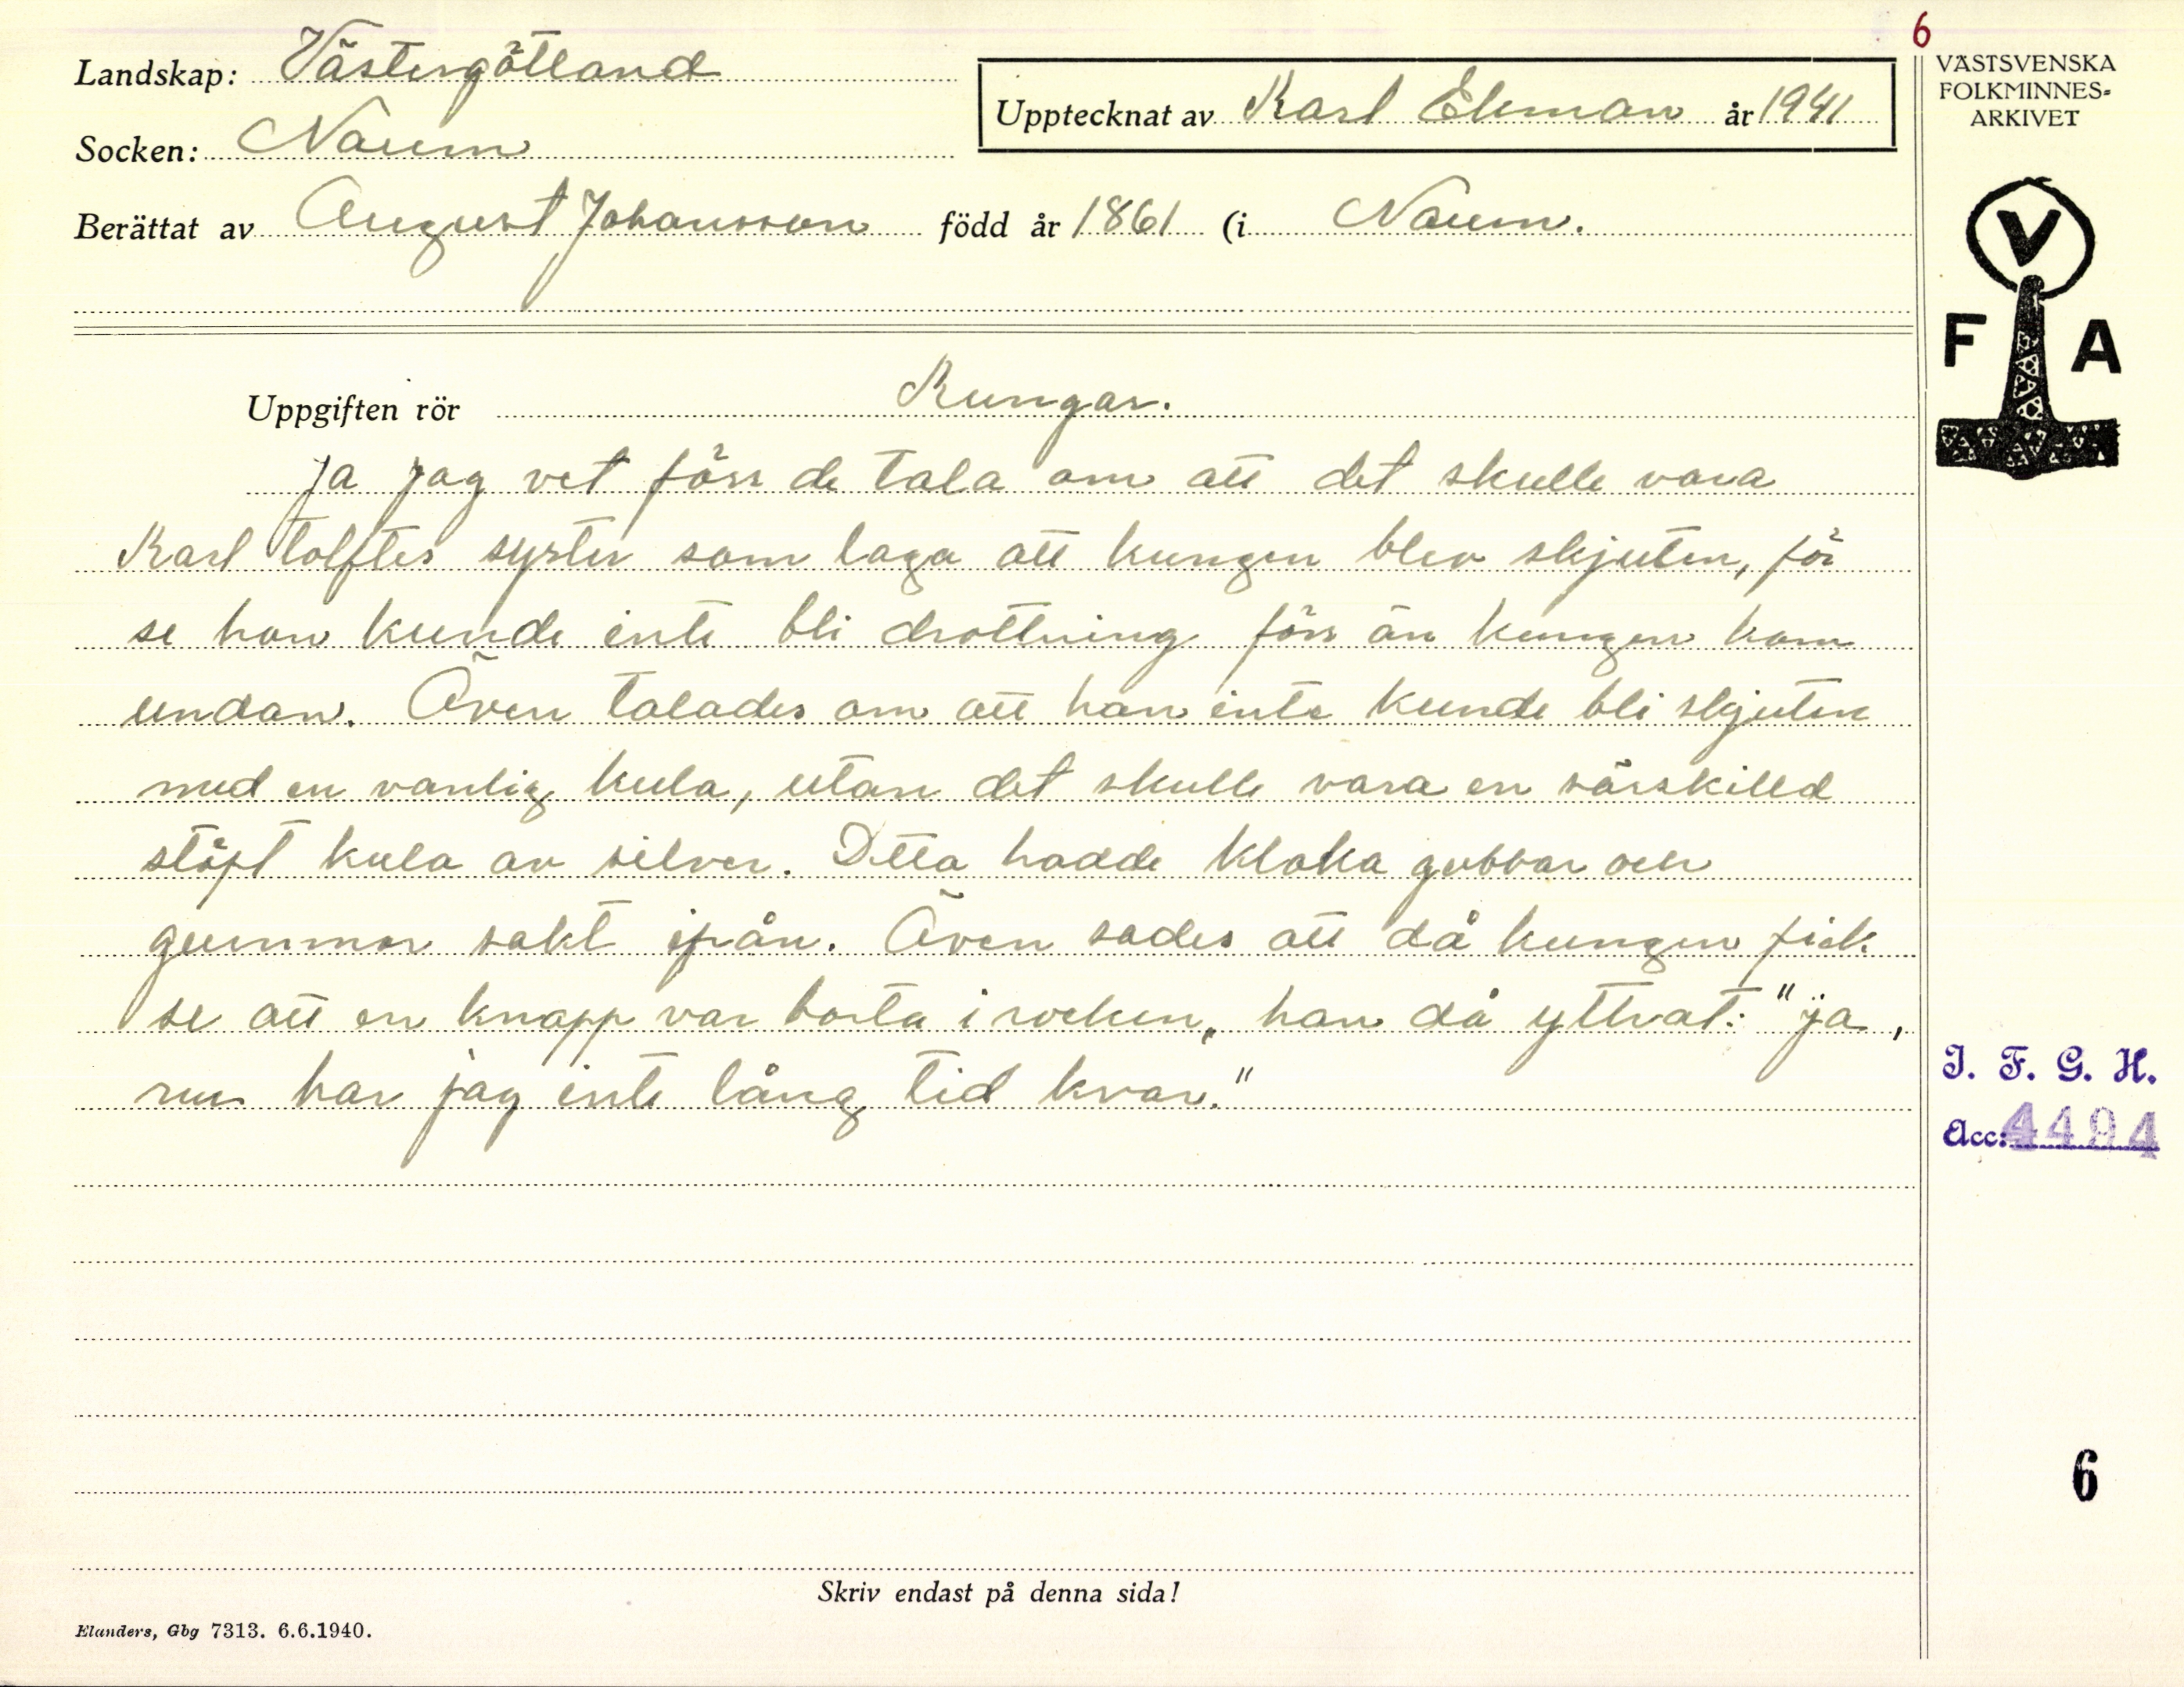 6
Landskap: Västergötland
Socken: Naum
Upptecknat av Karl Ekman år 1941
Berättat av August Johansson född år 1861 (i Naum.
VÄSTSVENSKA
FOLKMINNES-
ARKIVET
V
F A
Uppgiften rör Kungar.
Ja jag vet förr de tala om att det skulle vara
Karl tolftes syster som laga att kungen blev skjuten, för
se hon kunde inte bli drottning förr än kungen kom
undan. Även talades om att han inte kunde bli skjuten
med en vanlig kula, utan det skulle vara en särskilld
stöpt kula av silver. Detta hadde kloka gubbar och
gummor sakt ifrån. Även sades att då kungen fick
se att en knapp var borta i rocken, han då yttrat: "ja,
nu har jag inte lång tid kvar."
I. F. G. H.
Acc: 4494
6
Skriv endast på denna sida!
Elanders, Gbg 7313. 6.6.1940.